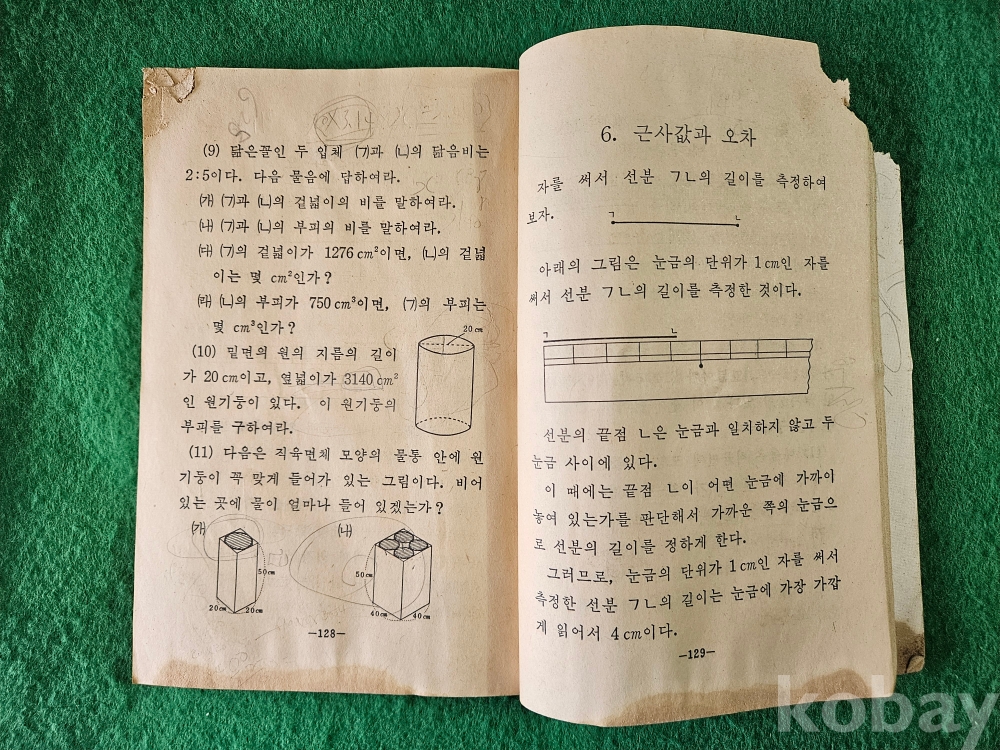 (9) 닮은꼴인 두 입체 ㈀과 ㈁의 닮음비는
2:5이다. 다음 물음에 답하여라.
㈎ ㈀과 ㈁의 겉넓이의 비를 말하여라.
㈏ ㈀과 ㈁의 부피의 비를 말하여라.
㈐ ㈀의 겉넓이가 1276 cm²이면, ㈁의 겉넓
이는 몇 cm²인가?
㈑ ㈁의 부피가 750 cm³이면, ㈀의 부피는
몇 cm³인가?
20cm
(10) 밑면의 원의 지름의 길이
가 20 cm이고, 옆넓이가 3140 cm²
인 원기둥이 있다. 이 원기둥의
부피를 구하여라.
(11) 다음은 직육면체 모양의 물통 안에 원
기둥이 꼭 맞게 들어가 있는 그림이다. 비어
있는 곳에 물이 얼마나 들어 있겠는가?
㈎
㈏
50cm
50cm
20cm
20cm
40cm
40cm
—128—
6. 근사값과 오차
자를 써서 선분 ㄱㄴ의 길이를 측정하여
보자.
ㄱ ㄴ
아래의 그림은 눈금의 단위가 1 cm인 자를
써서 선분 ㄱㄴ의 길이를 측정한 것이다.
ㄱ ㄴ
선분의 끝점 ㄴ은 눈금과 일치하지 않고 두
눈금 사이에 있다.
이 때에는 끝점 ㄴ이 어떤 눈금에 가까이
놓여 있는가를 판단해서 가까운 쪽의 눈금으
로 선분의 길이를 정하게 한다.
그러므로, 눈금의 단위가 1 cm인 자를 써서
측정한 선분 ㄱㄴ의 길이는 눈금에 가장 가깝
게 읽어서 4 cm이다.
—129—
kobay